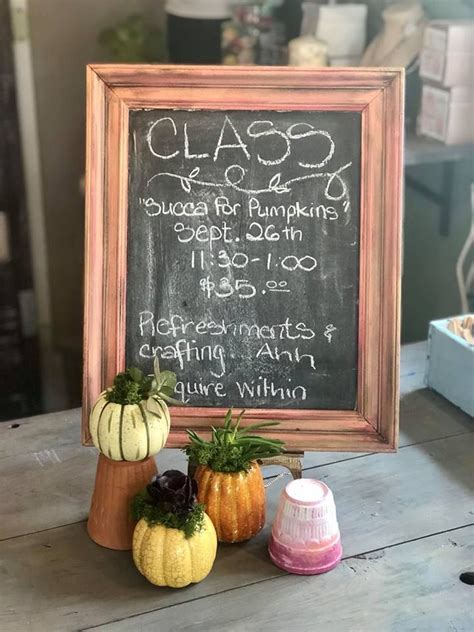 CLASS
"Succa For Pumpkins"
Sept. 26th
11:30-1:00
$35.00
Refreshments &
crafting. Ahh
Inquire Within